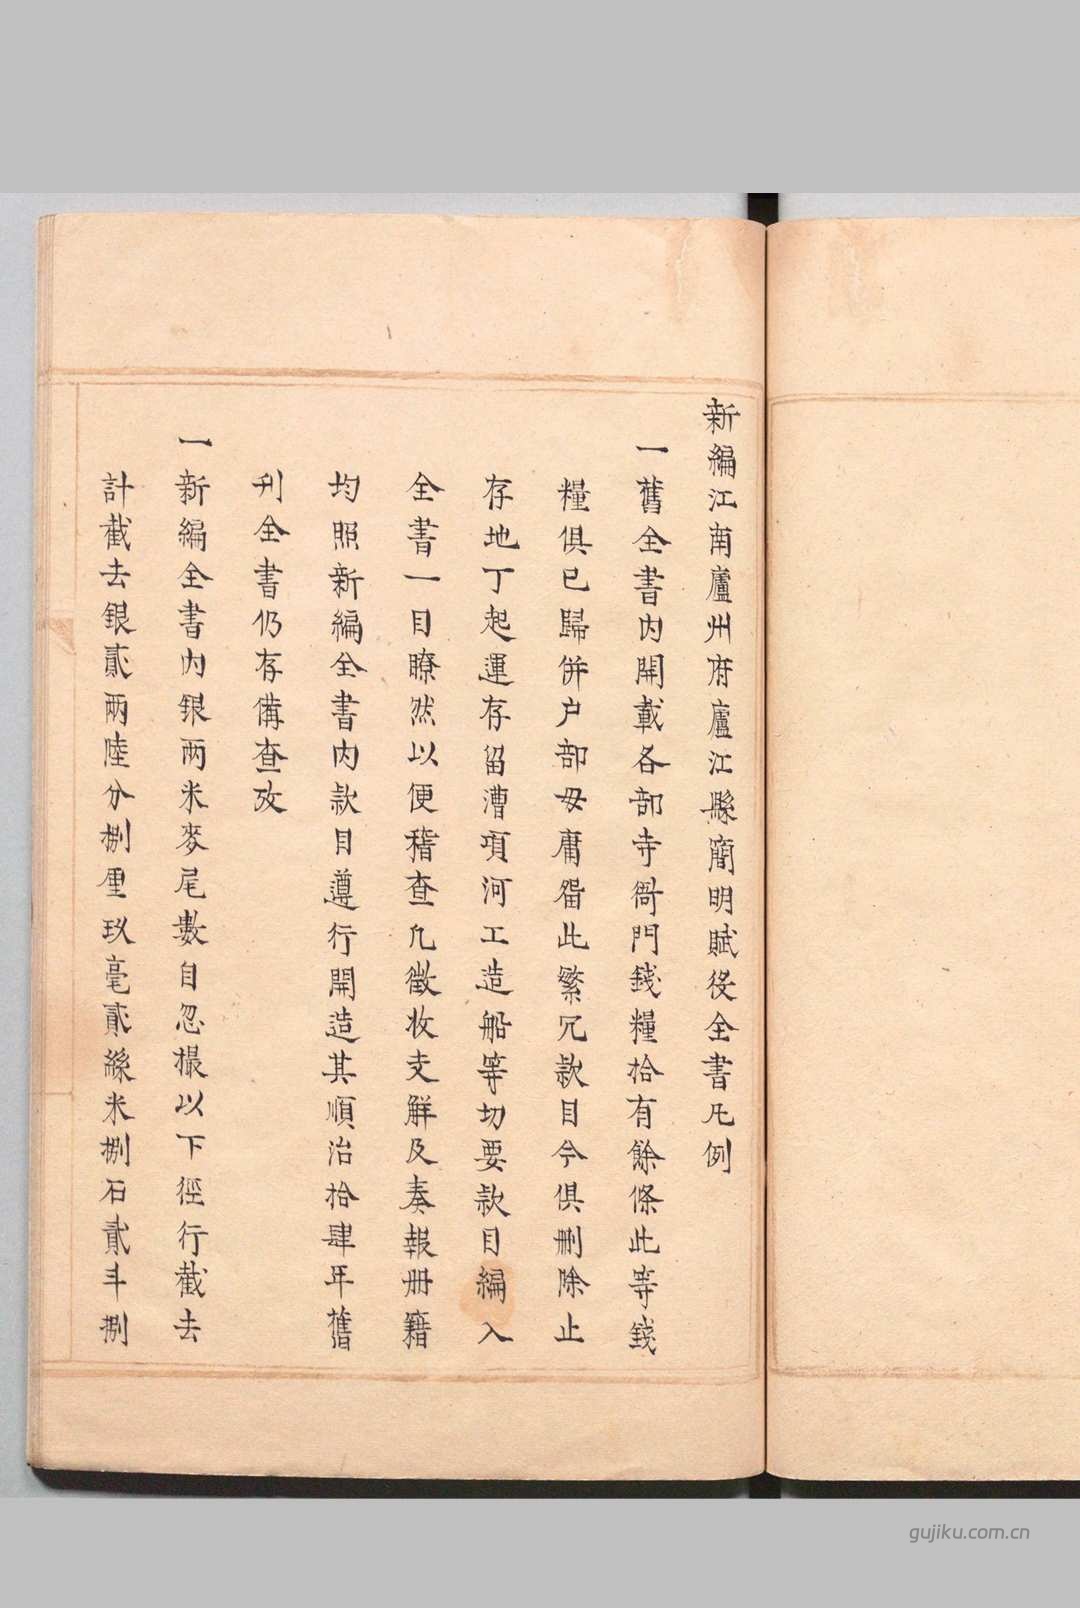 新編江南廬州府廬江縣簡明賦役全書凡例
一舊全書內開載各部寺衙門錢糧拾有餘條此等錢
糧俱已歸併户部毋庸畱此繁冗款目今俱刪除止
存地丁起運存留漕項河工造船等切要款目編入
全書一目瞭然以便稽查凡徵收支解及奏報册籍
均照新編全書內款目遵行開造其順治拾肆年舊
刋全書仍存備查攷
一新編全書內銀兩米麥尾數自忽撮以下徑行截去
計截去銀貳兩陸分捌厘玖毫貳絲米捌石貳斗捌
gujiku.com.cn